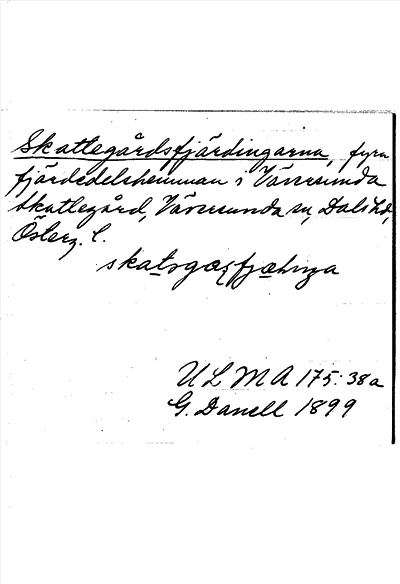 Skattegårdsfjärdingarna, fyra
fjärdedelshemman i Väversunda
Skattegård, Väversunda sn, Dals hd,
Österg. l.
ULMA 175:38a
G. Danell 1899